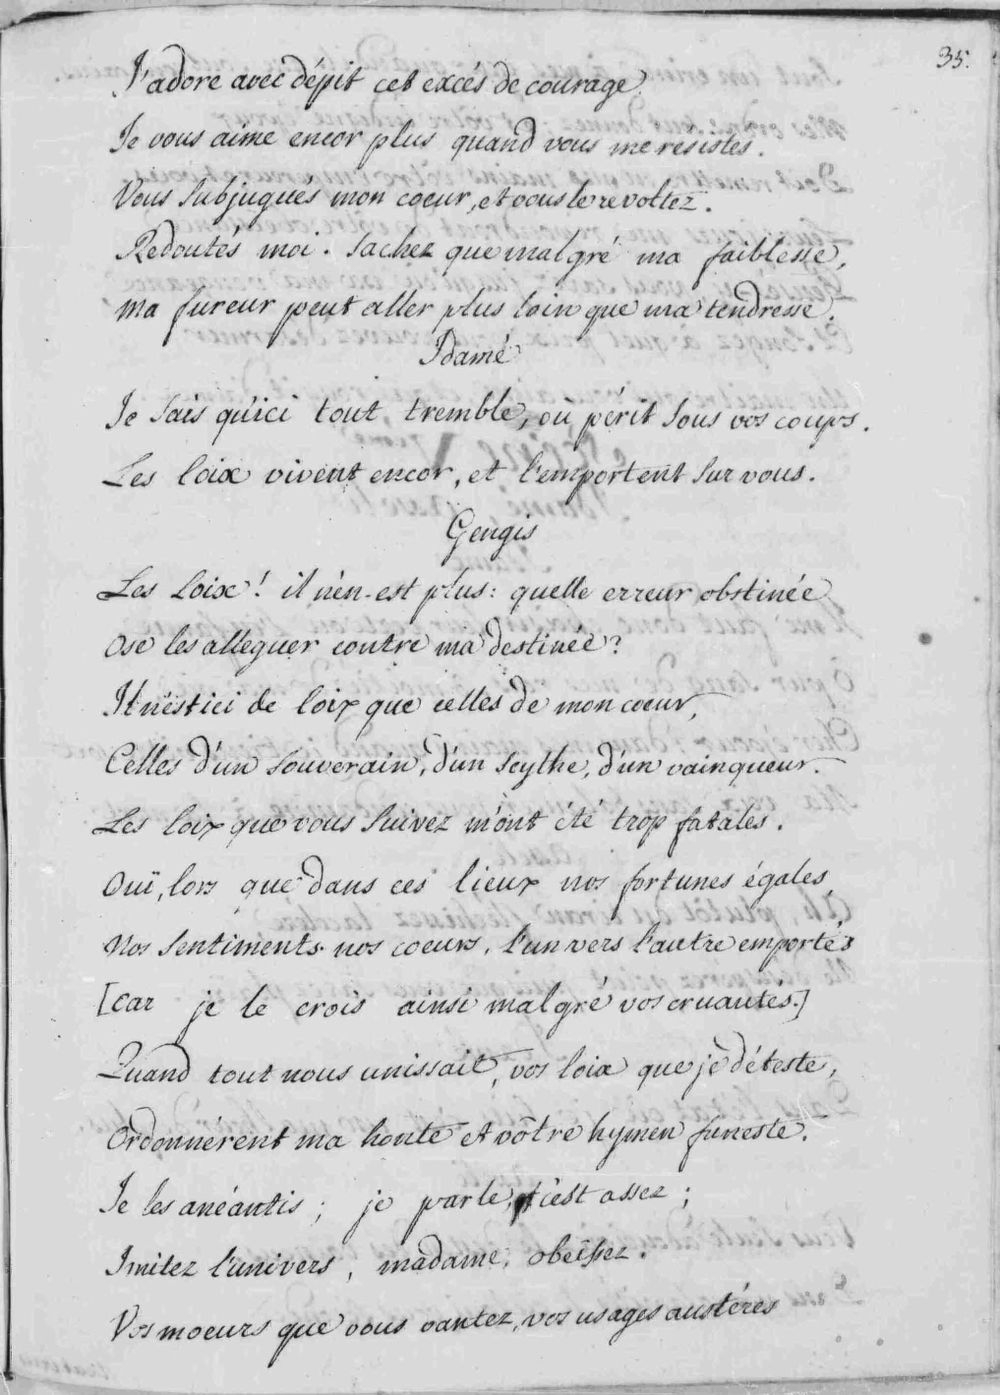 35.
J'adore avec dépit cet excés de courage
Je vous aime encor plus quand vous me résistés.
Vous subjugués mon coeur, et vous le revoltez.
Redoutés moi. Sachez que malgré ma faiblesse,
Ma fureur peut aller plus loin que ma tendresse.
Idamé
Je sais qu'ici tout tremble, où périt sous vos coups.
Les loix vivent encor, et l'emportent sur vous.
Gengis
Les Loix! il n'en est plus: quelle erreur obstinée
Ose les alleguer contre ma destinée?
Il n'est ici de loix que celles de mon coeur,
Celles d'un souverain, d'un scythe, d'un vainqueur.
Les loix que vous suivez m'ont été trop fatales.
Ouï, lors que dans ces lieux nos fortunes égales,
Nos sentiments nos coeurs, l'un vers l'autre emportés
[car je le crois ainsi malgré vos cruautés.]
Quand tout nous unissait, vos loix que je déteste,
Ordonnérent ma honte et vôtre hymen funeste.
Je les anéantis; je parle, c'est assez;
Imitez l'univers, madame, obeïssez.
Vos moeurs que vous vantez, vos usages austéres